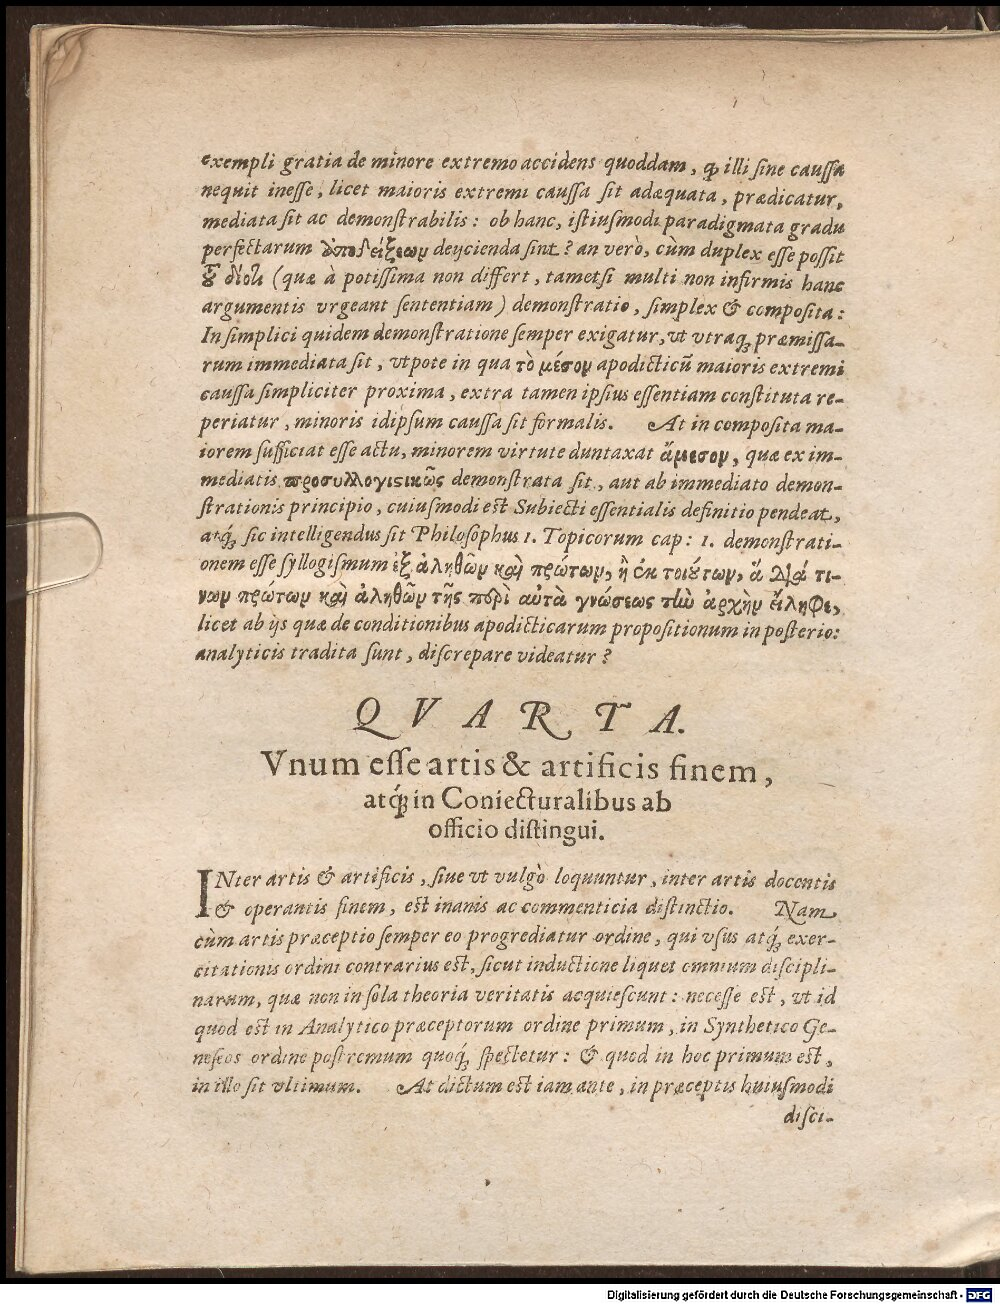 exempli gratia de minore extremo accidens quoddam, ꝙ illi sine caussa
nequit inesse, licet maioris extremi caussa sit adæquata, prædicatur,
mediata sit ac demonstrabilis: ob hanc, istiusmodi paradigmata gradu
perfectarum ἀποδείξεων deijcienda sint? an verò, cùm duplex esse possit
τοῦ διότι (quæ à potissima non differt, tametsi multi non infirmis hanc
argumentis vrgeant sententiam) demonstratio, simplex & composita:
In simplici quidem demonstratione semper exigatur, vt vtraq́; præmissa-
rum immediata sit, vtpote in qua τὸ μέσον apodicticũ maioris extremi
caussa simpliciter proxima, extra tamen ipsius essentiam constituta re-
periatur, minoris idipsum caussa sit formalis. At in composita ma-
iorem sufficiat esse actu, minorem virtute duntaxat ἄμεσον, quæ ex im-
mediatis προσυλλογιστικῶς demonstrata sit, aut ab immediato demon-
strationis principio, cuiusmodi est Subiecti essentialis definitio pendeat,
atq́; sic intelligendus sit Philosophus 1. Topicorum cap: 1. demonstrati-
onem esse syllogismum ἐξ ἀληθῶν καὶ πρώτων, ἢ ἐκ τοιούτων, ἃ διά τι-
νων πρώτων καὶ ἀληθῶν τῆς περὶ αὐτὰ γνώσεως τὴν ἀρχὴν εἴληφε,
licet ab ijs quæ de conditionibus apodicticarum propositionum in posterio:
analyticis tradita sunt, discrepare videatur?
QVARTA.
Vnum esse artis & artificis finem,
atq́; in Coniecturalibus ab
officio distingui.
INter artis & artificis, siue vt vulgò loquuntur, inter artis docentis
& operantis finem, est inanis ac commenticia distinctio. Nam
cùm artis præceptio semper eo progrediatur ordine, qui vsus atq́; exer-
citationis ordini contrarius est, sicut inductione liquet omnium discipli-
narum, quæ non in sola theoria veritatis acquiescunt: necesse est, vt id
quod est in Analytico præceptorum ordine primum, in Synthetico Ge-
neseos ordine postremum quoq́; spectetur: & quod in hoc primum est,
in illo sit vltimum. At dictum est iam ante, in præceptis huiusmodi
disci-
Digitalisierung gefördert durch die Deutsche Forschungsgemeinschaft - DFG